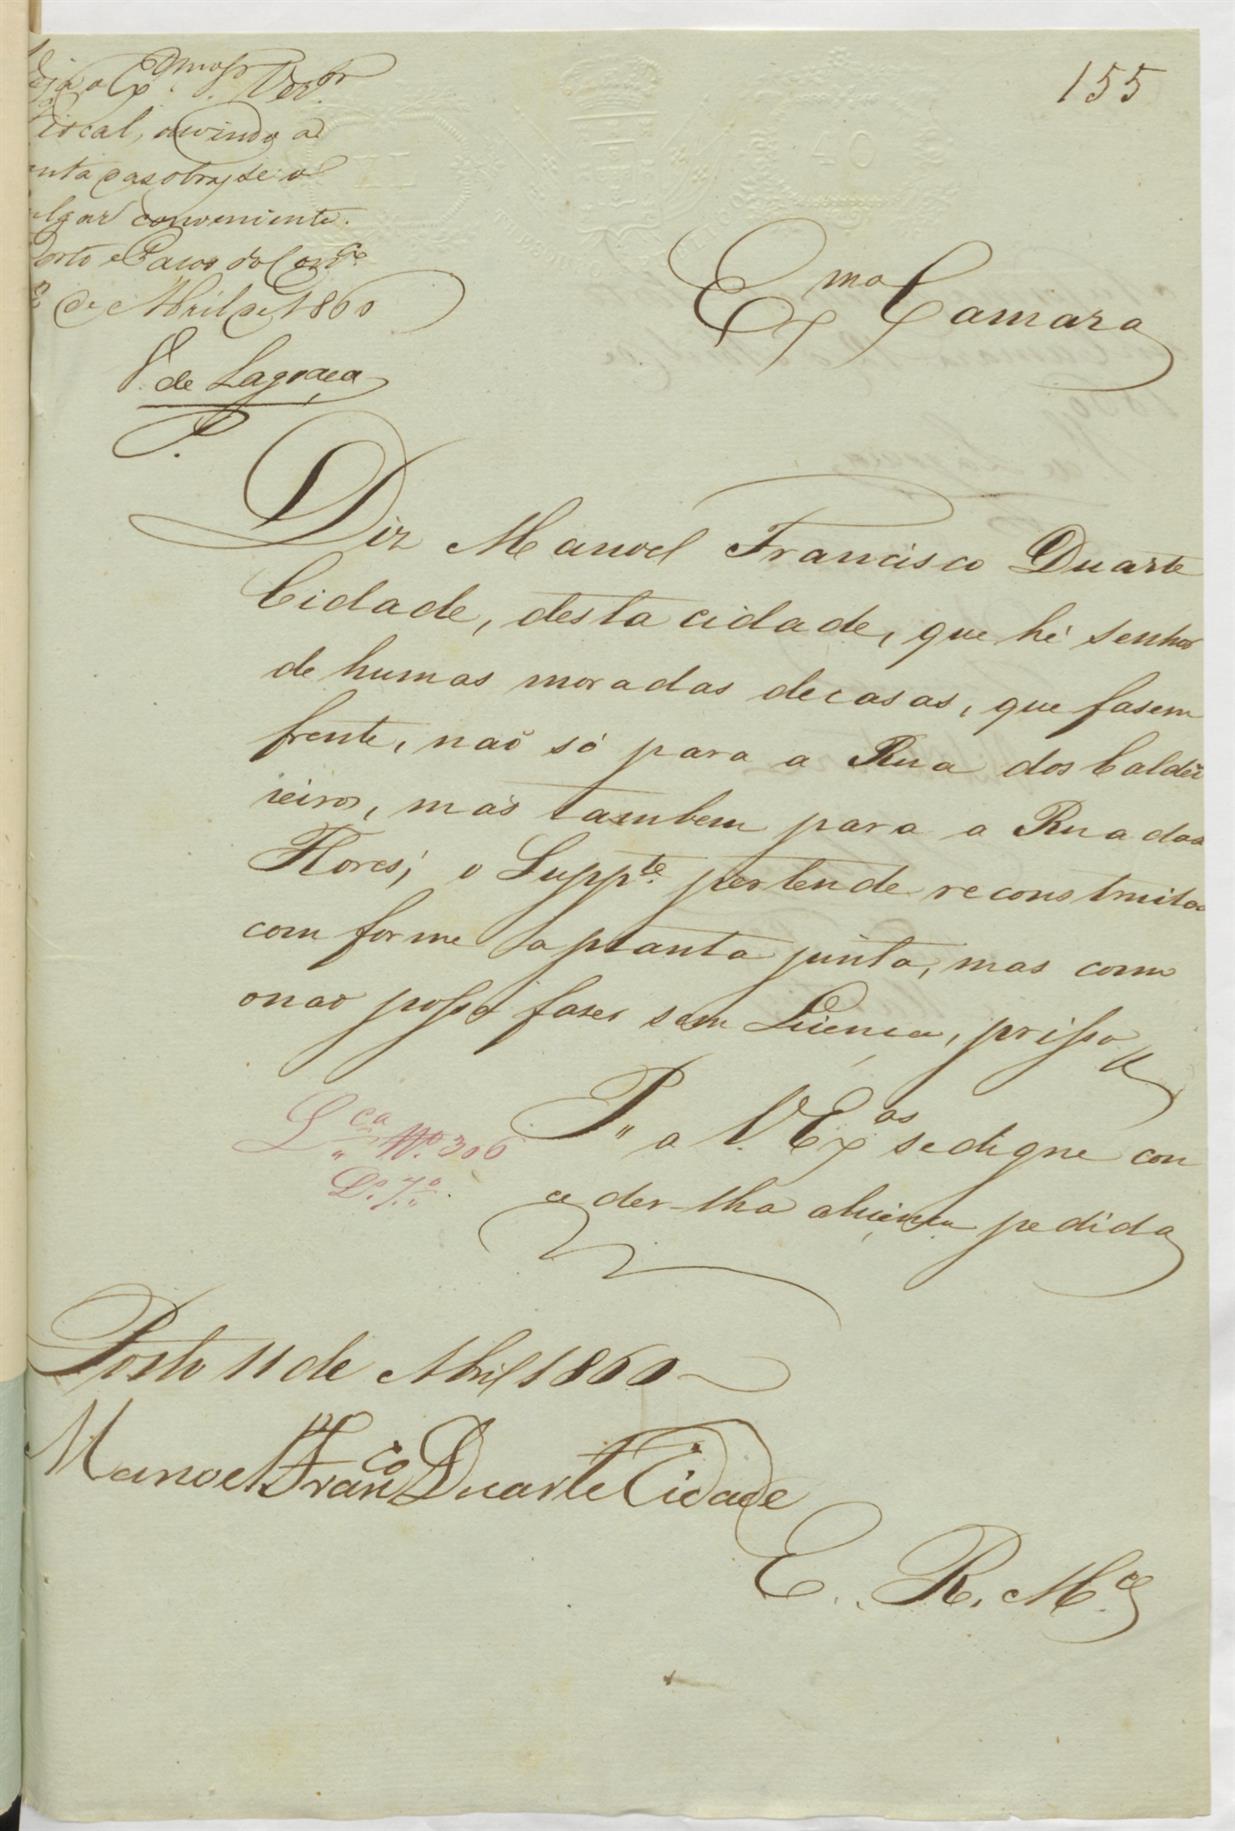 155
Ex.mo Ver.or
iscal, ouvindo a
unta das obras, se o
ulgar conveniente.
orto e Paços do Con.co
de Abril de 1860
V. de Lagoaça
P.
Ex.ma Camara
Diz Manoel Francisco Duarte
Cidade, desta cidade, que hé senhor
de humas moradas de casas, que fasem
frente, naõ só para a Rua dos Caldei
reiros, mas tambem para a Rua das
Flores; o Supp.te pertende reconstruilas
comforme a planta junta, mas como
o nao possa fazer sem Licença, prisso
P. a V. Ex.as se digne con
ceder-lha a licença pedida
L.ca N.o 306
D.o 7.o
Porto 11 de Abril 1860
Manoel Fran.co Duarte Cidade
E. R. M.ce